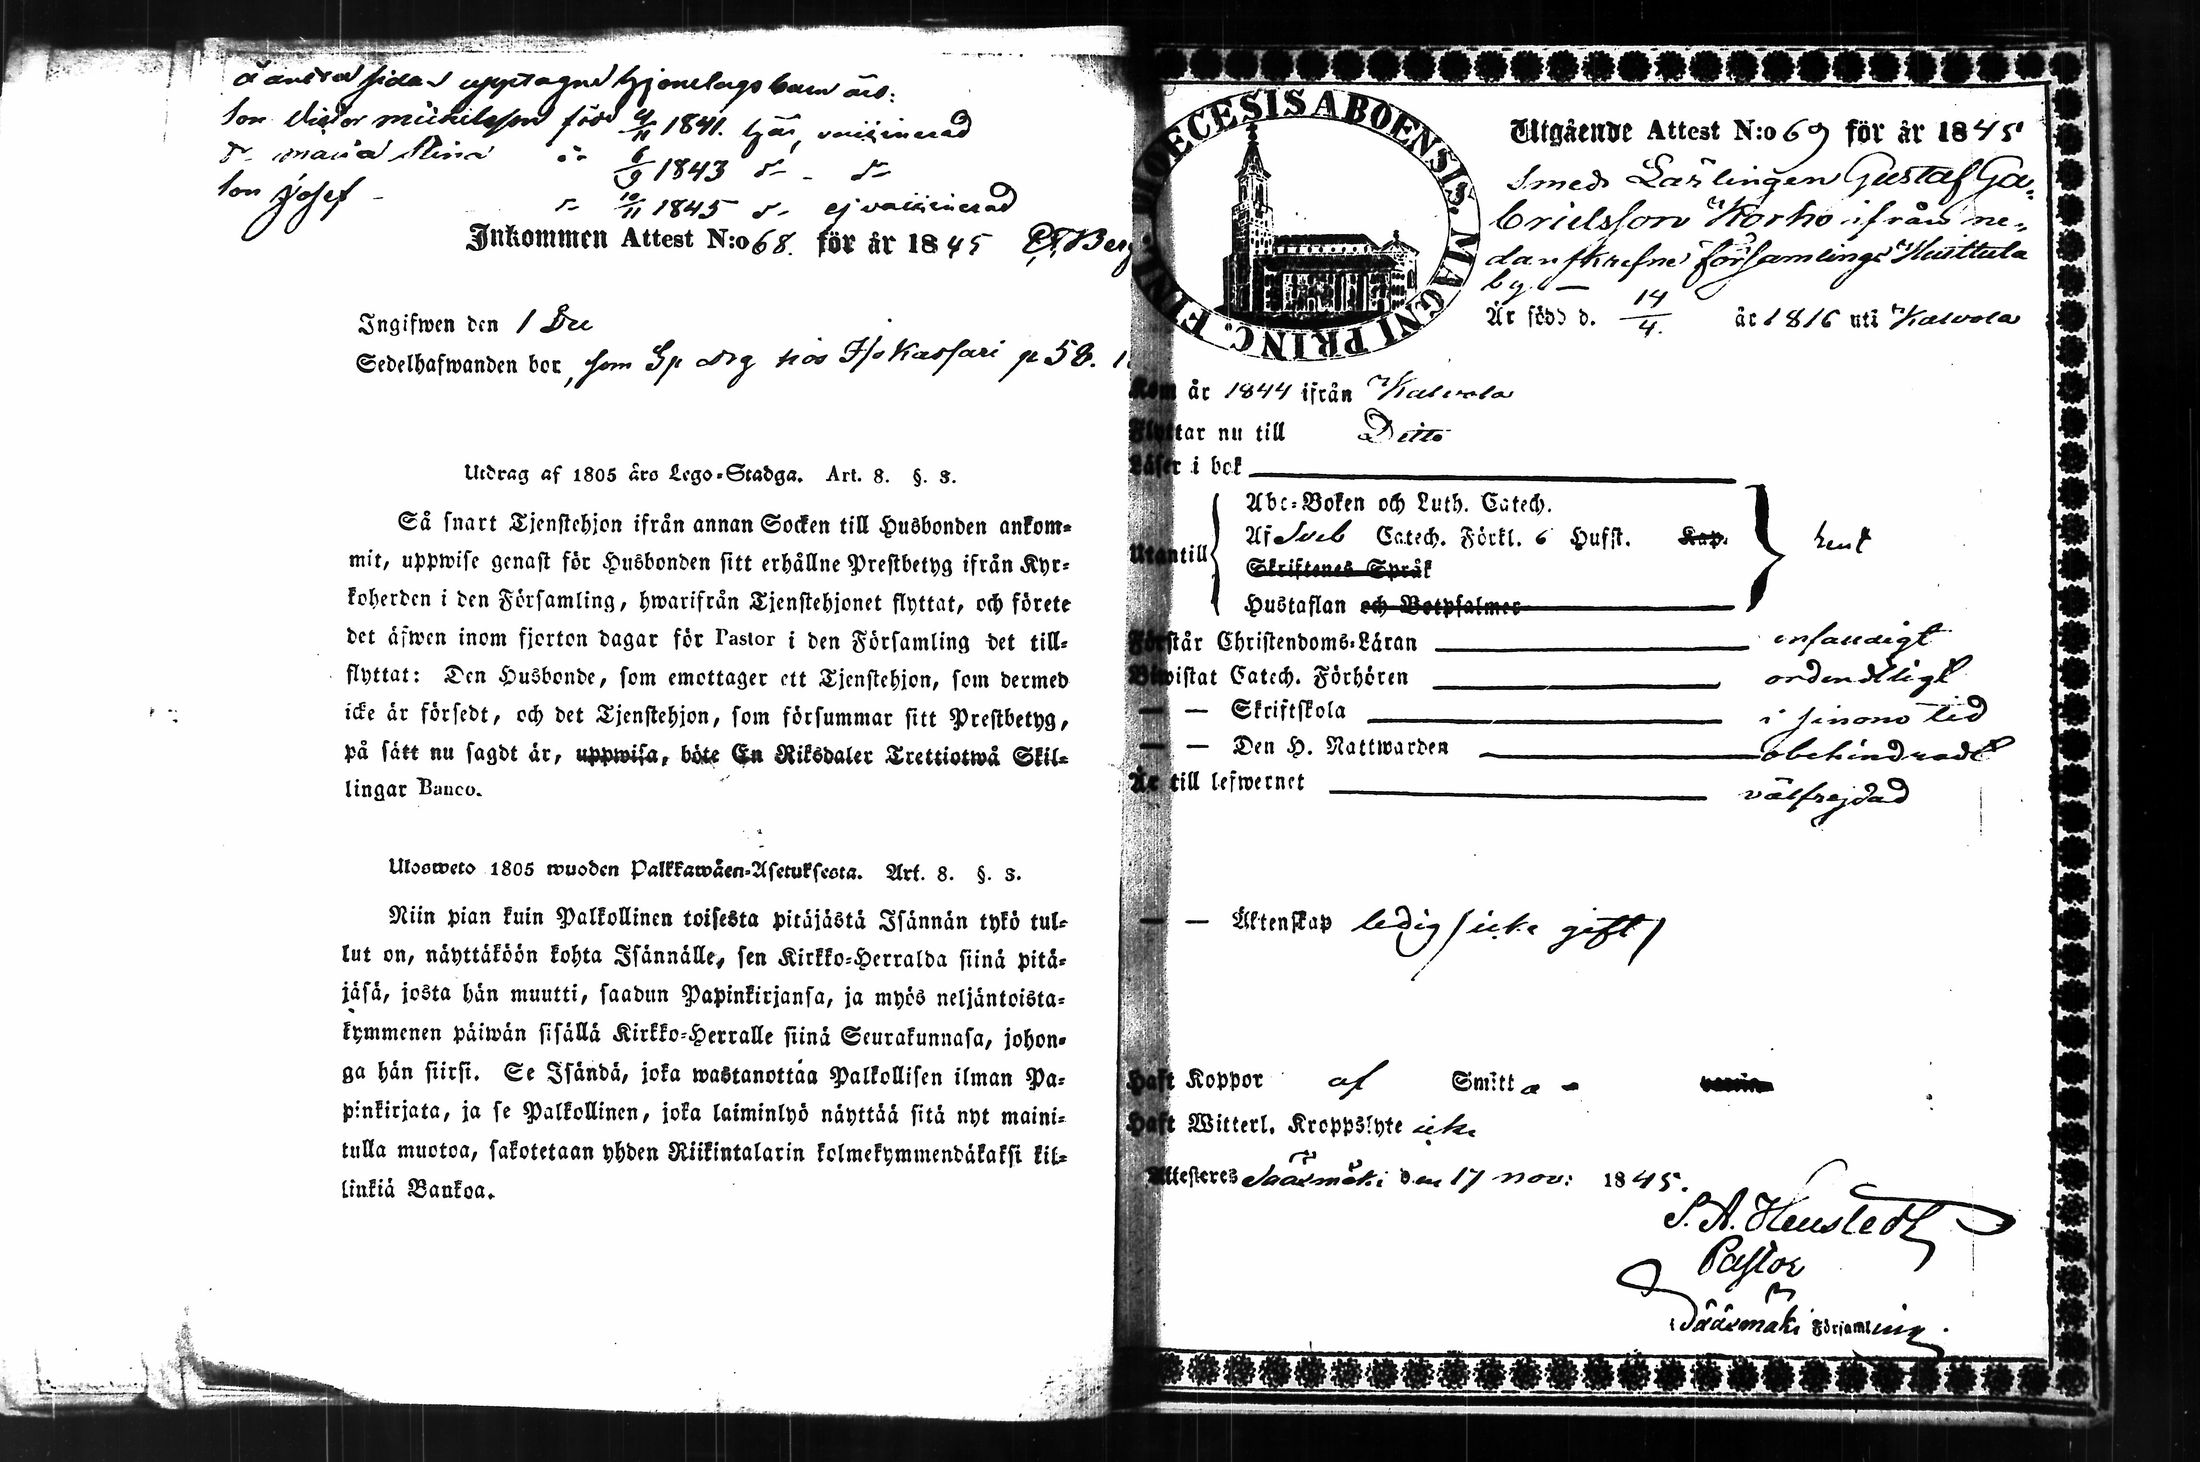 å andra sidan upptagne hjonelags barn äro:
Son Victor Michelsson född 4/11 1841. här, vaccinerad
D:r Maria Stina 6/9 1843 d:o - d:o
Son Josef - 10/11 1845 d:o ej vaccinerad
Inkommen Attest N:o 68. för år 1845
Ingifwen den 1 Dec
Sedelhafwanden bor, som drg hos Kassari p 58.
Utdrag af 1805 års Lego-Stadga. Art. 8. §. 3.
Så snart Tjenstehjon ifrån annan Socken till Husbonden ankom-
mit, uppwise genast för Husbonden sitt erhållne Prestbetyg ifrån Kyr-
koherden i den Församling, hwarifrån Tjenstehjonet flyttat, och förete
det äfwen inom fjorton dagar för Pastor i den Församling det till-
flyttat: Den Husbonde, som emottager ett Tjenstehjon, som dermed
icke är försedt, och det Tjenstehjon, som försummar sitt Prestbetyg,
på sätt nu sagdt är, uppwisa, böte En Riksdaler Trettiotwå Skil-
lingar Banco.
Ulosweto 1805 wuoden Palkkawäen-Asetuksesta. Art. 8. §. 3.
Niin pian kuin Palkollinen toisesta pitäjästä Isännän tykö tul-
lut on, näyttäköön kohta Isännälle, sen Kirkko-Herralda siinä pitä-
jäsä, josta hän muutti, saadun Papinkirjansa, ja myös neljäntoista-
kymmenen päiwän sisällä Kirkko-Herralle siinä Seurakunnasa, johon-
ga hän siirsi. Se Isändä, joka wastanottaa Palkollisen ilman Pa-
pinkirjata, ja se Palkollinen, joka laiminlyö näyttää sitä nyt maini-
tulla muotoa, sakotetaan yhden Riikintalarin kolmekymmendäkaksi kil-
linkiä Bankoa.
DIOECESIS ABOENSIS. MAGNI PRINC. FINL.
Utgående Attest N:o 69 för år 1845
Smeds Lärlingen Gustaf Ga-
brielsson Korho ifrån ne-
danskrefne församlings Huittula
by —
Är född d. 14/4. år 1816 uti Kalvola
Kom år 1844 ifrån Kalvola
Flyttar nu till Ditto
Läser i bok
Utantill
Abc-Boken och Luth. Catech.
Af Sveb Catech. Förkl. 6 Hufst. Kap.
Skriftenes Språk
Hustaflan och Botpsalmer
Förstår Christendoms-Läran enfaldigt
Biwistat Catech. Förhören ordentligt
— — Skriftskola i sinom tid
— — Den H. Nattwarden obehindradt
Är till lefwernet välfrejdad
— — Äktenskap ledig /icke gift/
Haft Koppor af Smitta -
Haft Witterl. Kroppslyte icke
Attesteres Sääxmäki den 17 nov: 1845.
Pastor
i Sääxmäki Församling.